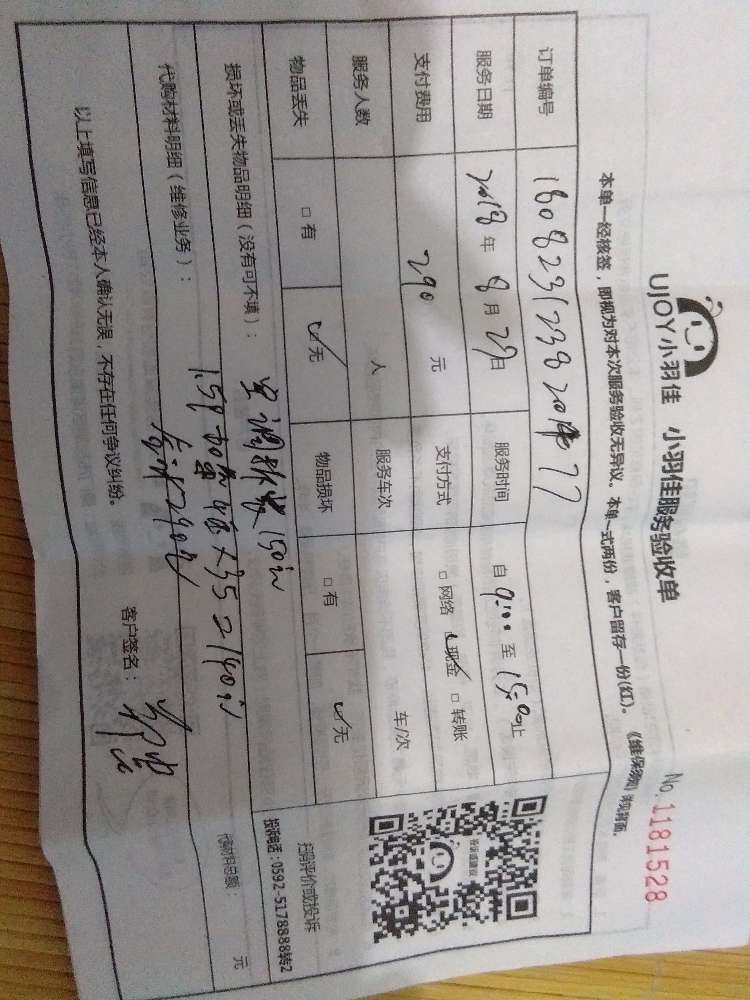 UJOY小羽佳 小羽佳服务验收单
No.1181528
本单一经核签,即视为对本次服务验收无异议。本单一式两份,客户留存一份(红)。《维保须知》详见背面。
订单编号
服务日期 2018 年 8 月 29 日 服务时间 自 9:00 至 15:00 止
支付费用 290 元 支付方式 □ 网络 ☑ 现金 □ 转账
服务人数 人 服务车次 车/次
物品丢失 □ 有 ☑ 无 物品损坏 □ 有 ☑ 无
损坏或丢失物品明细(没有可不填): 空调拆装150元
1.5P 加氟 4 × 35 = 140元
代购材料明细(维修业务): 合计290元
代购材料总额: 元
以上填写信息已经本人确认无误,不存在任何争议纠纷。 客户签名:
投诉或建议
扫码评价或投诉
投诉电话:0592-5178888转2